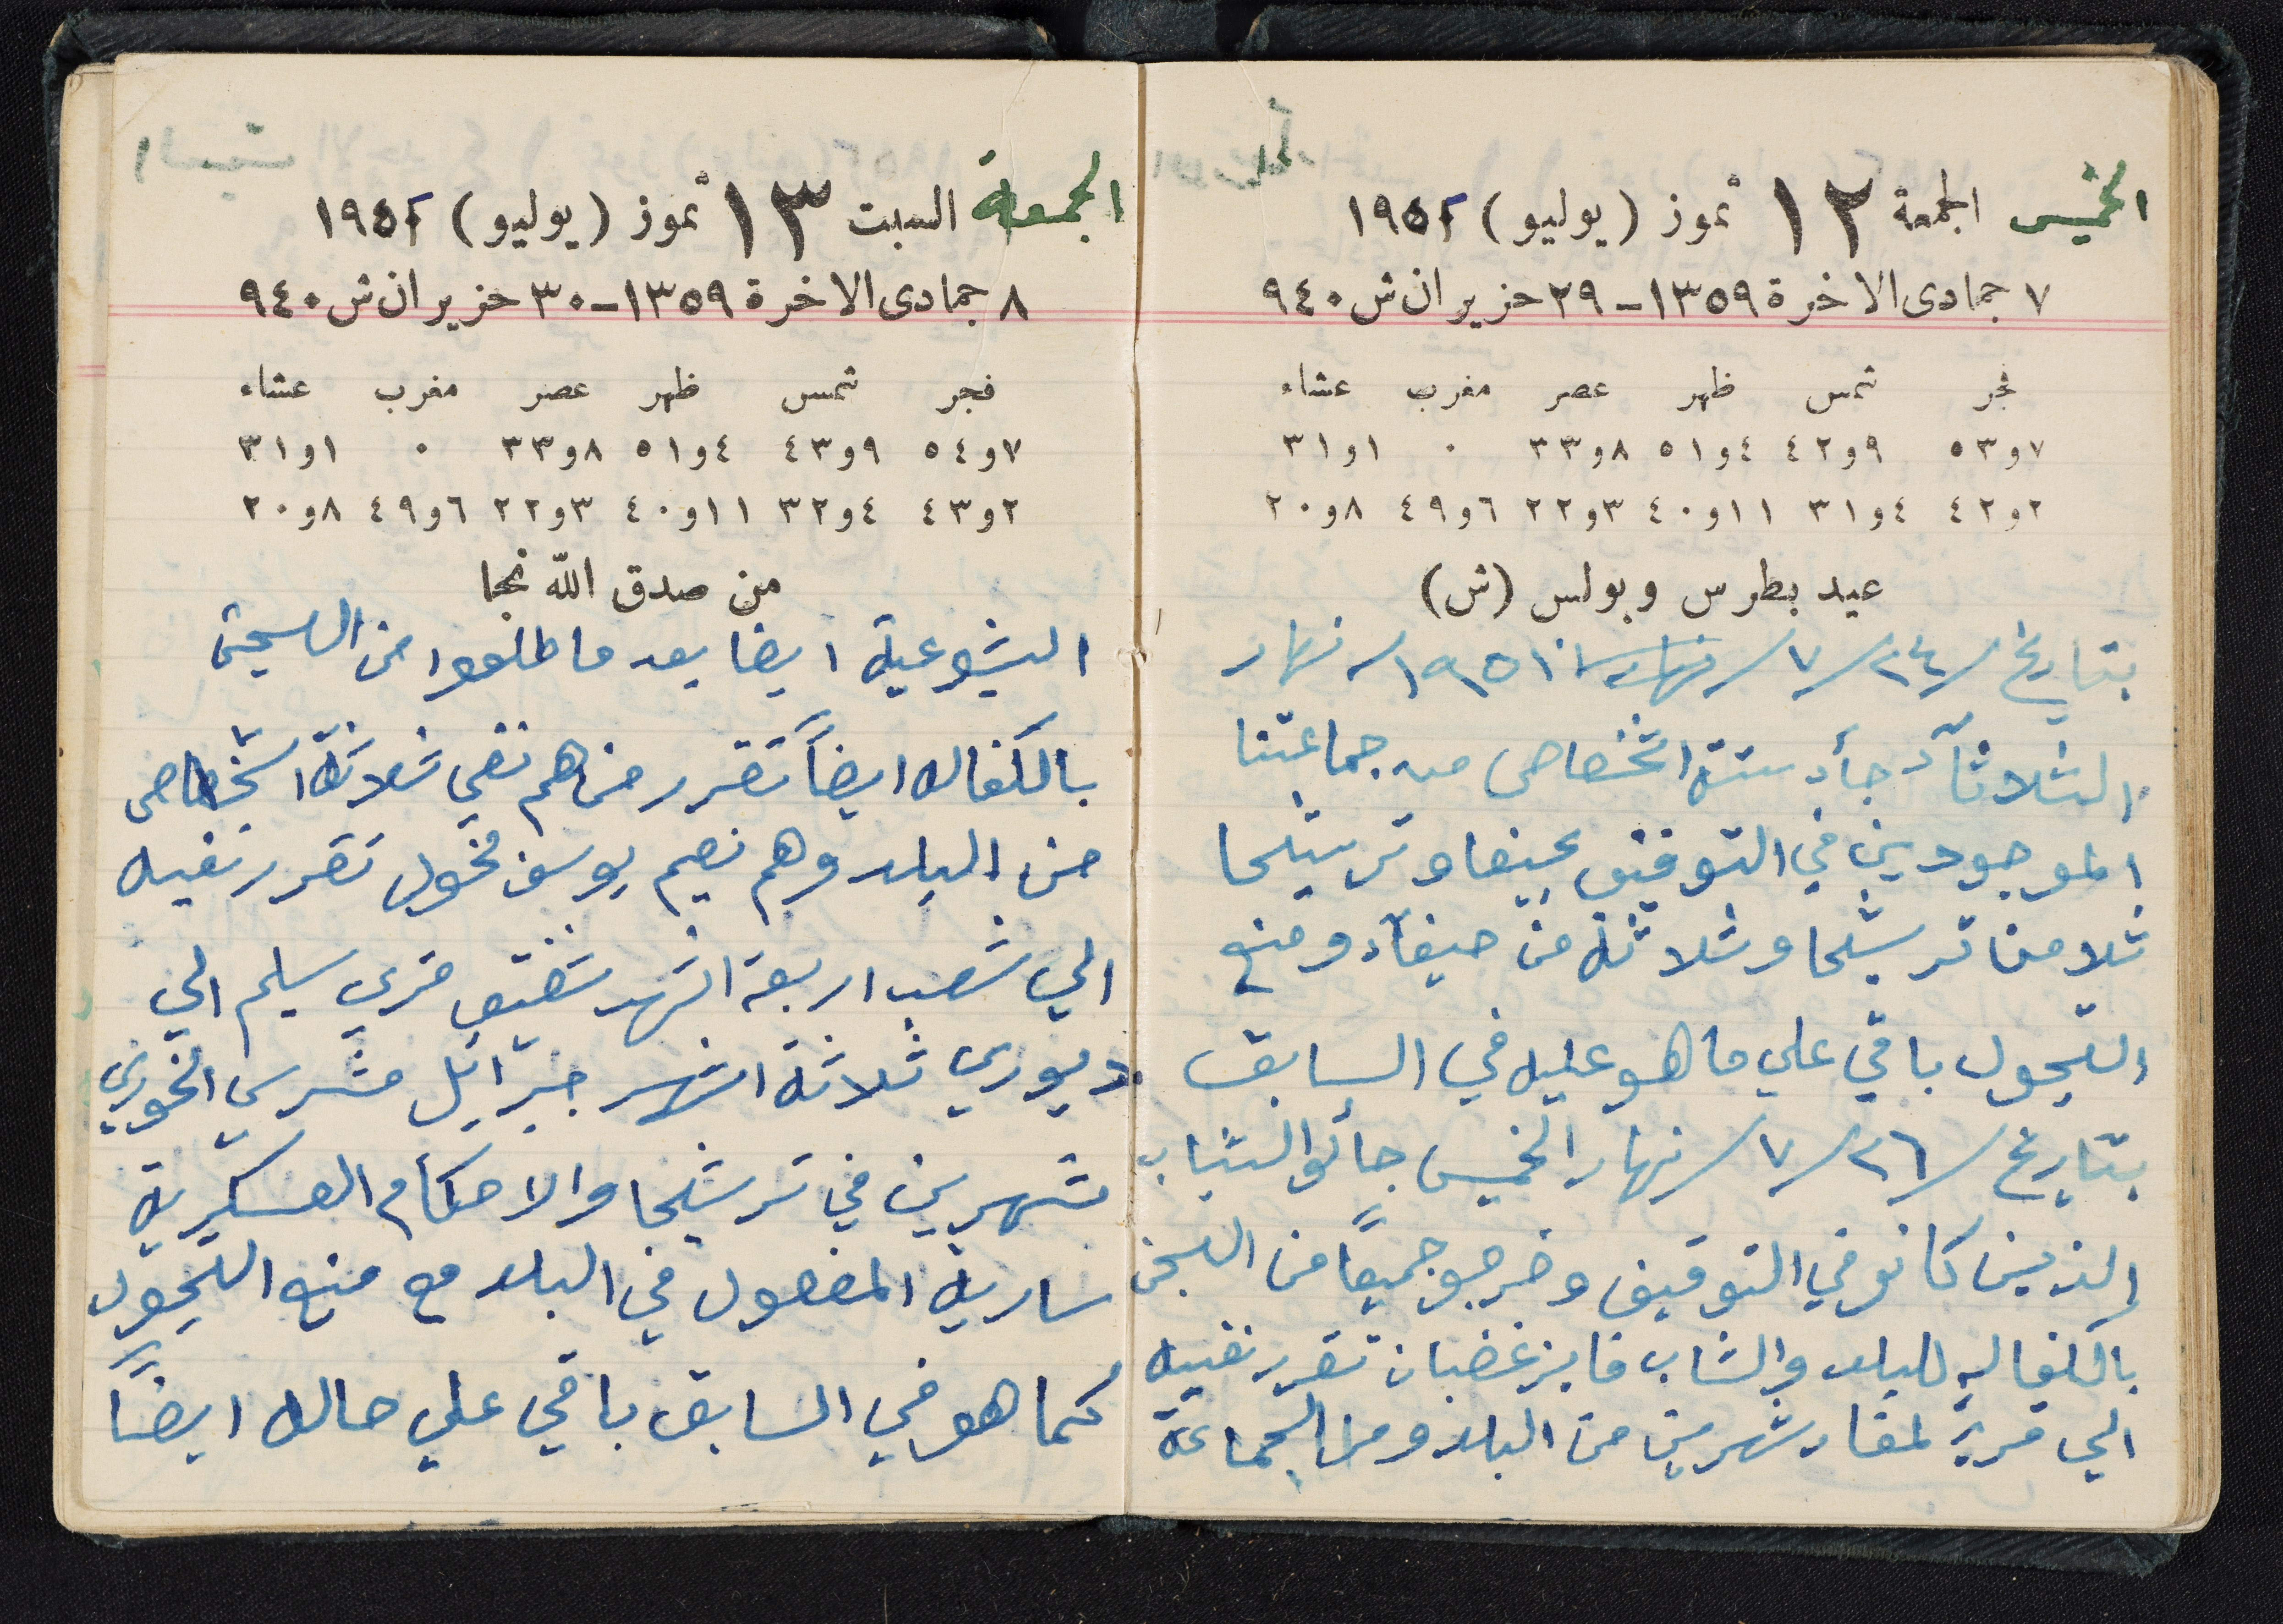 الخميس الجمعة ١٢ تموز (يوليو) ١٩٥١
٧ جمادى الاخرة ١٣٥٩ - ٢٩ حزيران ش ٩٤٠
فجر شمس ظهر عصر مغرب عشاء
٧و٥٣ ٩و٤٢ ٤و٥١ ٨و٣٣ ٠ ١و٣١
٢و٤٢ ٤و٣١ ١١و٤٠ ٣و٢٢ ٦و٤٩ ٨و٢٠
عيد بطرس وبولس (ش)
بتاريخ ٢٤/٧/ نهار ١٩٥١ نهار
الثلاثآء جأء ستة اشخاص من جماعتنا
الموجودين في التوقيف بحيفا وترشيحا
ثلا من ترشيحا وثلاثة من حيفآء ومنع
التجول باقي علي ما هو عليه في السابق
بتاريخ ٢٦/٧/ نهار الخميس جائو الشباب
الذين كانو في التوقيف وخرجو جميعاً من السجن
بالكفاله للبلد والشاب فايز غضبان تقرر نفيه
الي قرية لمقار شهرين من البلد ومن الجماعة
الجمعة السبت ١٣ تموز (يوليو) ١٩٥١
٨ جمادى الاخرة ١٣٥٩ - ٣٠ حزيران ش ٩٤٠
فجر شمس ظهر عصر مغرب عشاء
٧و٥٤ ٩و٤٣ ٤و٥١ ٨و٣٣ ٠ ١و٣١
٢و٤٣ ٤و٣٢ ١١و٤٠ ٣و٢٢ ٦و٤٩ ٨و٢٠
من صدق الله نجا
الشيوعية ايضا بعد ما طلعوا من السجن
بالكفاله ايضاً تقرر من هم نفي ثلاثة اشخاص
من البلد وهم نعيم يوسف مخول تقرر نفيه
الي شعب اربعة اشهر شفيق قزي سليم الي
ديوري ثلاثة اشهر جبرائيل مشرسي الخوري
شهرين في ترشيحا والاحكام العسكرية
سارية المفعول في البلد مع منع التجول
كما هو في السابق باقي علي حاله ايضاً